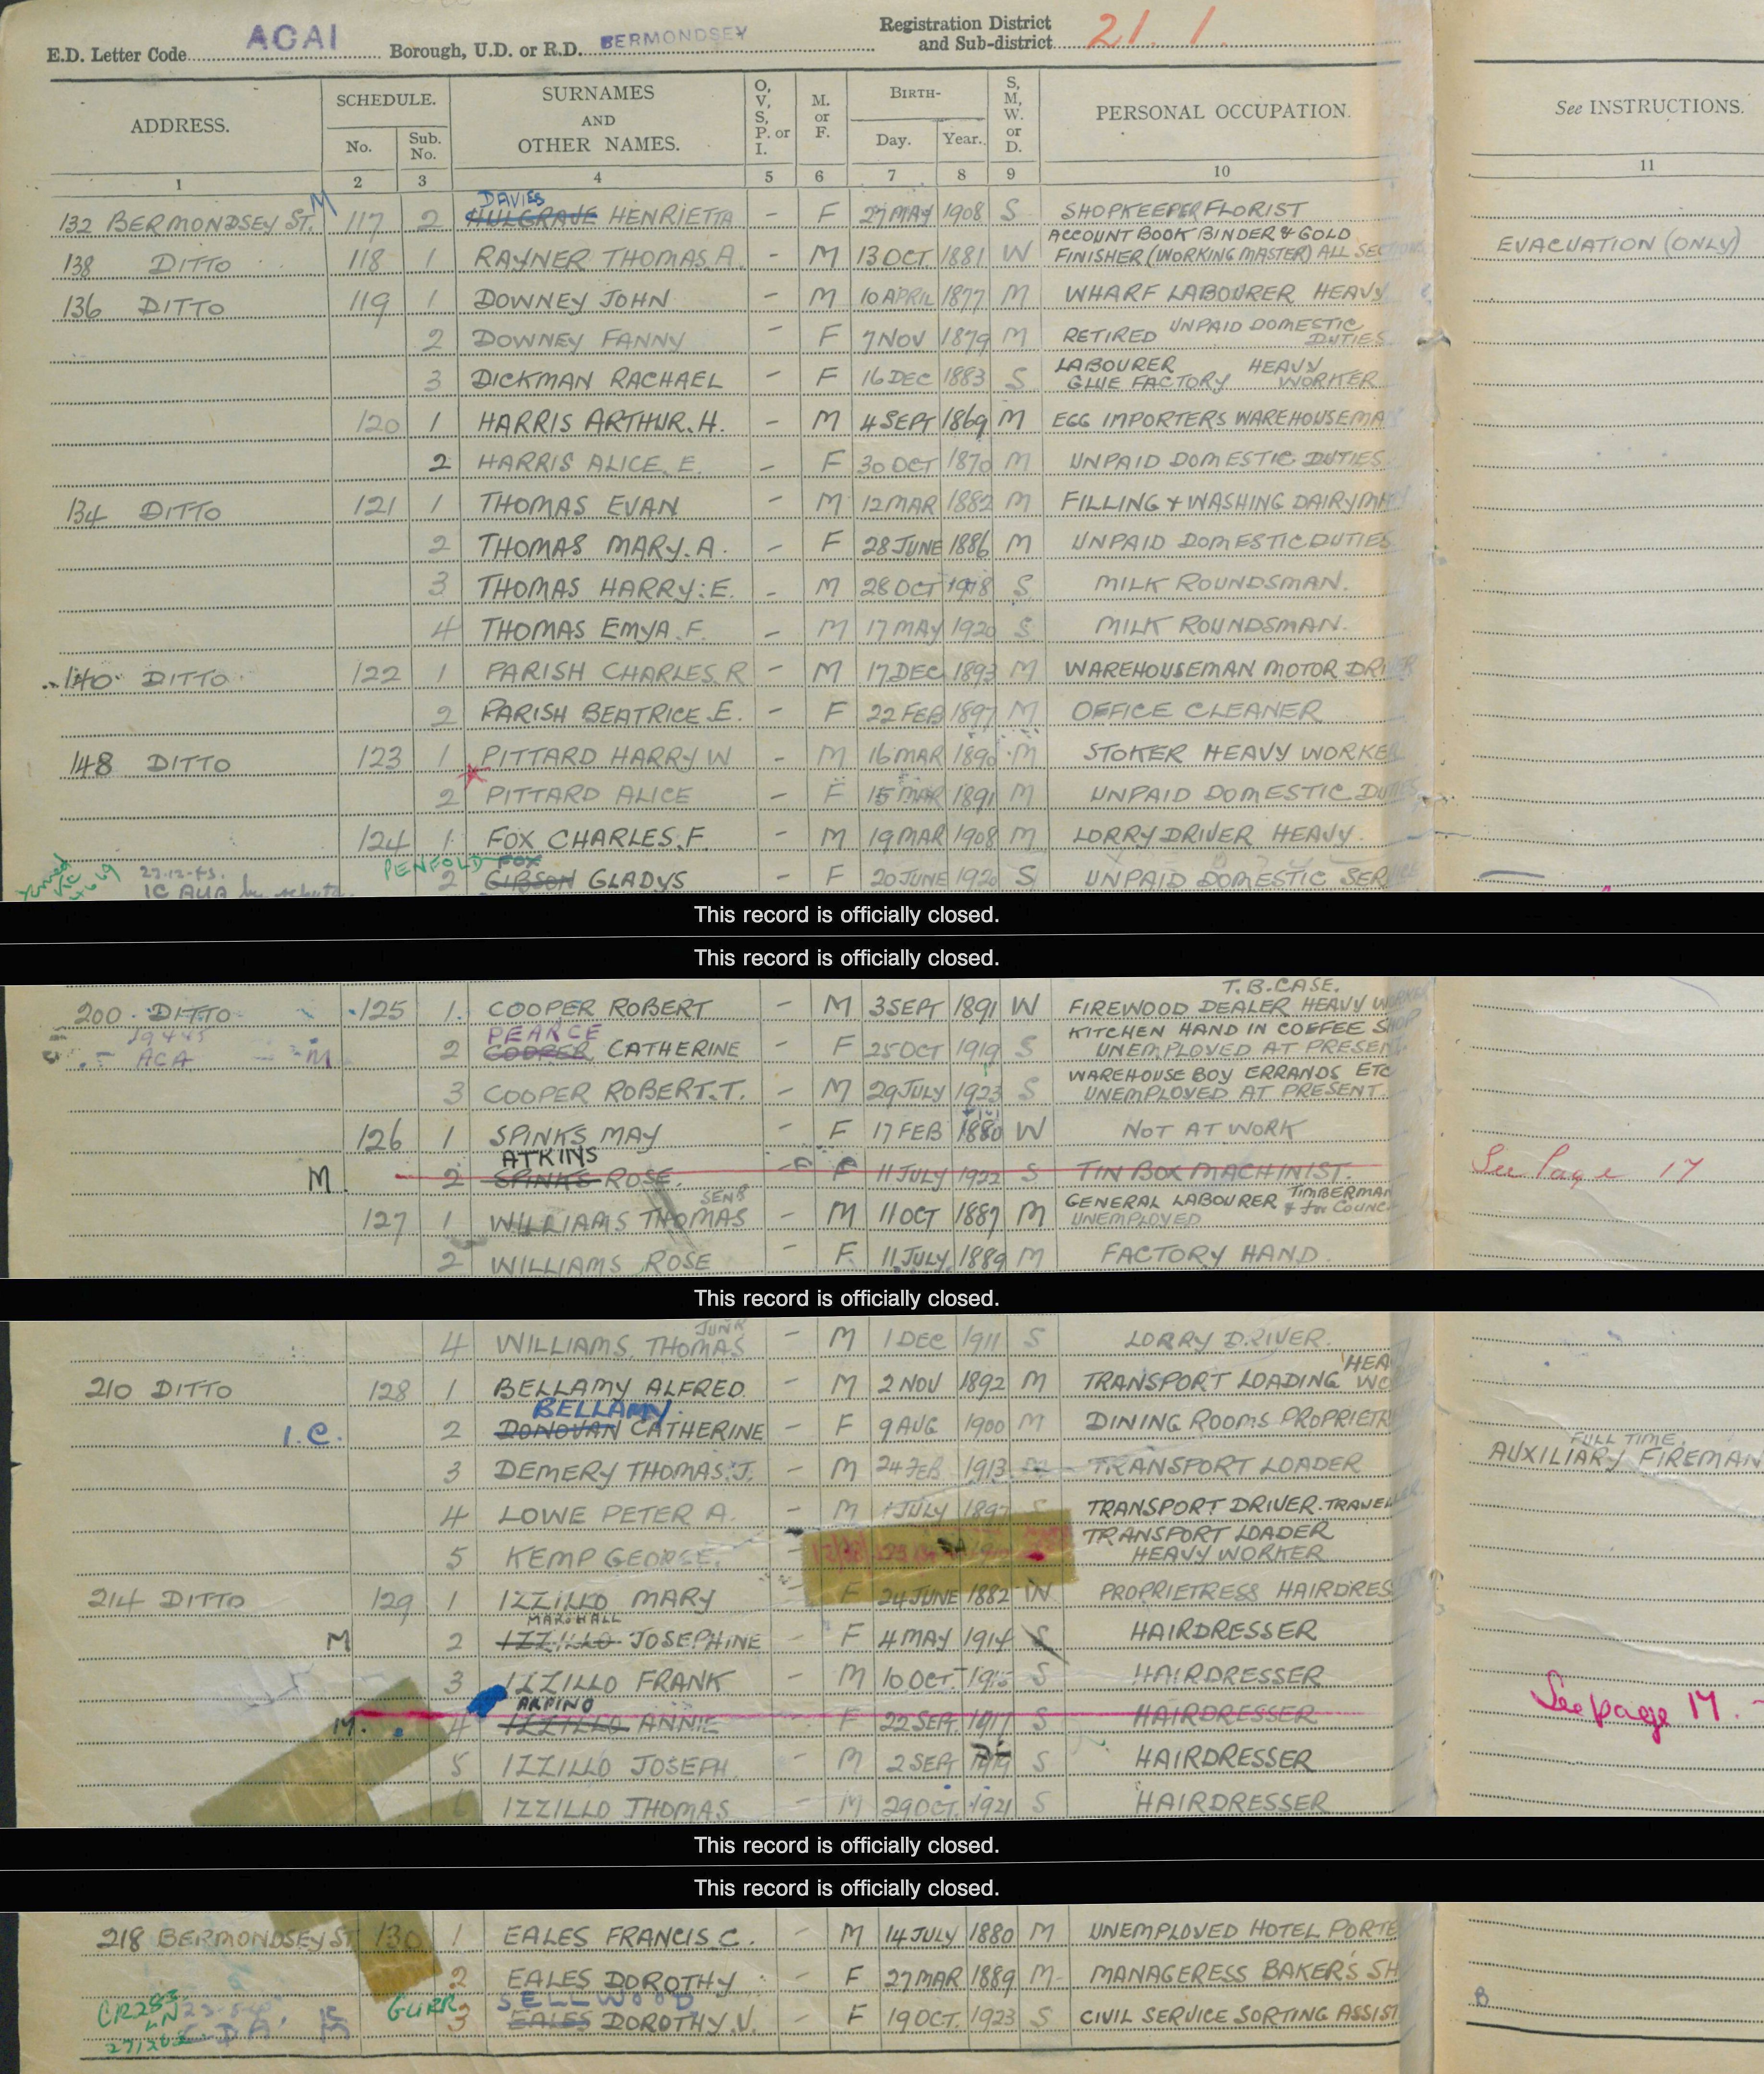 Registration District
E.D. Letter Code ACAI Borough, U.D. or R.D. BERMONDSEY and Sub-district 21. 1.
ADDRESS. SCHEDULE. No. Sub. No. SURNAMES AND OTHER NAMES. O, V, S, P. or I. M. or F. BIRTH- Day. Year. S, M, W. or D. PERSONAL OCCUPATION. See INSTRUCTIONS.
1 2 3 4 5 6 7 8 9 10 11
DAVIES
132 BERMONDSEY ST. M 117 2 HULGRAVE HENRIETTA - F 27 MAY 1908 S SHOPKEEPER FLORIST
ACCOUNT BOOK BINDER & GOLD
138 DITTO 118 1 RAYNER THOMAS. A. - M 13 OCT 1881 W FINISHER (WORKING MASTER) ALL SEC EVACUATION (ONLY)
136 DITTO 119 1 DOWNEY JOHN - M 10 APRIL 1877 M WHARF LABOURER HEAVY
2 DOWNEY FANNY - F 7 NOV 1879 M RETIRED UNPAID DOMESTIC DUTIES
3 DICKMAN RACHAEL - F 16 DEC 1883 S LABOURER HEAVY
GLUE FACTORY WORKER
120 1 HARRIS ARTHUR. H. - M 4 SEPT 1869 M EGG IMPORTERS WAREHOUSEMA
2 HARRIS ALICE. E. - F 30 OCT 1870 M UNPAID DOMESTIC DUTIES
134 DITTO 121 1 THOMAS EVAN - M 12 MAR 1882 M FILLING & WASHING DAIRYMA
2 THOMAS MARY. A. - F 28 JUNE 1886 M UNPAID DOMESTIC DUTIES
3 THOMAS HARRY: E. - M 28 OCT 1918 S MILK ROUNDSMAN.
4 THOMAS EMYA. F. - M 17 MAY 1920 S MILK ROUNDSMAN.
140 DITTO 122 1 PARISH CHARLES. R - M 17 DEC 1893 M WAREHOUSEMAN MOTOR DRIVER
2 PARISH BEATRICE. E. - F 22 FEB 1897 M OFFICE CLEANER
148 DITTO 123 1 PITTARD HARRY W - M 16 MAR 1890 M STOKER HEAVY WORKER
2 PITTARD ALICE - F 15 MAR 1891 M UNPAID DOMESTIC DUTIES
124 1 FOX CHARLES. F. - M 19 MAR 1908 M LORRY DRIVER HEAVY
PENFOLD FOX
23.12.43. 2 GIBSON GLADYS - F 20 JUNE 1920 S UNPAID DOMESTIC SERVICE
This record is officially closed.
This record is officially closed.
T. B. CASE.
200 DITTO 125 1. COOPER ROBERT - M 3 SEPT 1891 W FIREWOOD DEALER HEAVY WORKER
PEARCE KITCHEN HAND IN COFFEE SHOP
ACA M 2 COOPER CATHERINE - F 25 OCT 1919 S UNEMPLOYED AT PRESENT
WAREHOUSE BOY ERRANDS ETC
3 COOPER ROBERT. T. - M 29 JULY 1923 S UNEMPLOYED AT PRESENT.
126 1 SPINKS MAY - F 17 FEB 1880 W NOT AT WORK
ATKINS
M. 2 SPINKS ROSE. F 11 JULY 1922 S TIN BOX MACHINIST. See Page 17
SENR GENERAL LABOURER TIMBERMAN
127 1 WILLIAMS THOMAS - M 11 OCT 1887 M UNEMPLOYED & for COUNC
2 WILLIAMS ROSE - F 11 JULY 1889 M FACTORY HAND.
This record is officially closed.
JUNR
4 WILLIAMS. THOMAS - M 1 DEC 1911 S LORRY DRIVER.
HEA
210 DITTO 128 1 BELLAMY ALFRED. - M 2 NOV 1892 M TRANSPORT LOADING WO
BELLAMY
I.C. 2 DONOVAN CATHERINE - F 9 AUG 1900 M DINING ROOMS PROPRIETR
FULL TIME.
3 DEMERY THOMAS. J. - M 24 FEB 1913 TRANSPORT LOADER AUXILIARY FIREMAN
4 LOWE PETER A. - M 1 JULY 1897 S TRANSPORT DRIVER. TRAVELLER
TRANSPORT LOADER
5 KEMP GEORGE. HEAVY WORKER
214 DITTO 129 1 IZZILLO MARY F 24 JUNE 1882 W PROPRIETRESS HAIRDRES
MARSHALL
M 2 IZZILLO JOSEPHINE - F 4 MAY 1914 S HAIRDRESSER
3 IZZILLO FRANK - M 10 OCT 1915 S HAIRDRESSER
ARPINO
M. 4 IZZILLO ANNIE F 22 SEP. 1917 S HAIRDRESSER See page 17.
5 IZZILLO JOSEPH. - M 2 SEP 1919 S HAIRDRESSER
IZZILLO THOMAS - M 29 OCT. 1921 S HAIRDRESSER
This record is officially closed.
This record is officially closed.
218 BERMONDSEY ST 130 1 EALES FRANCIS. C. - M 14 JULY 1880 M UNEMPLOYED HOTEL PORTE
2 EALES DOROTHY - F 27 MAR 1889 M MANAGERESS BAKER'S SH
CR283 GURR SELLWOOD B
3 EALES DOROTHY. V. - F 19 OCT. 1923 S CIVIL SERVICE SORTING ASSIST